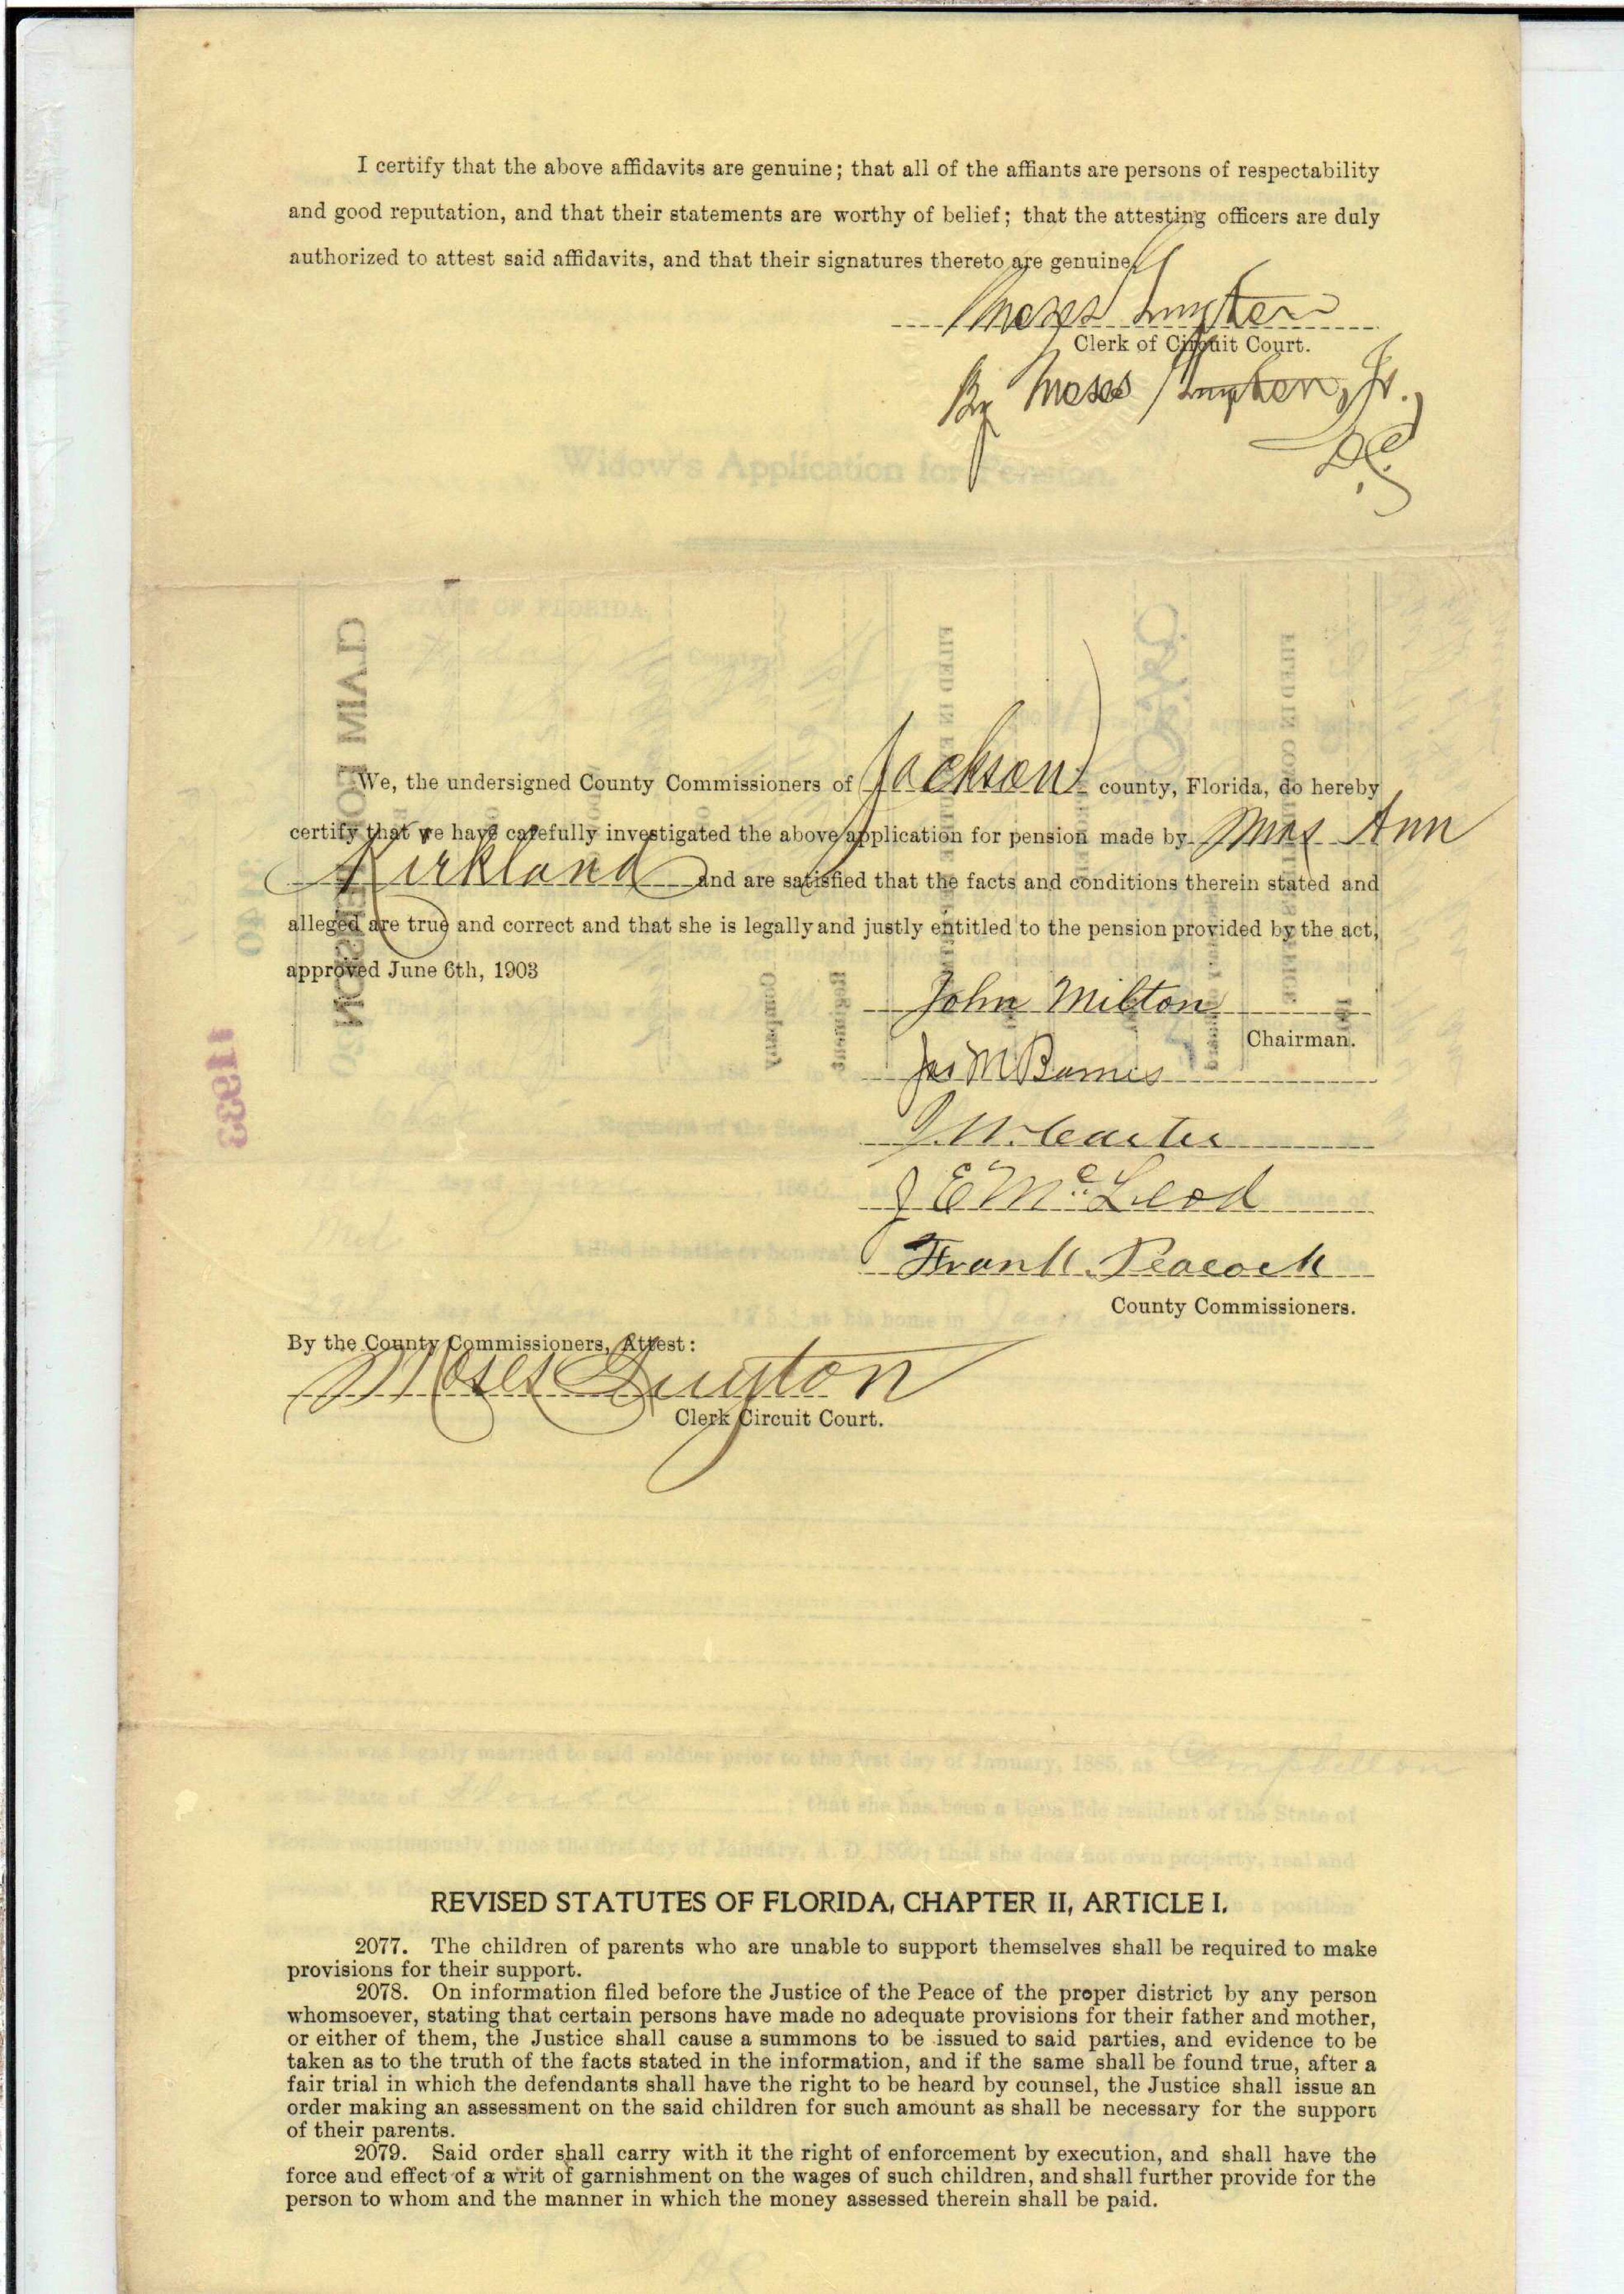 I certify that the above affidavits are genuine; that all of the affiants are persons of respectability
and good reputation, and that their statements are worthy of belief; that the attesting officers are duly
authorized to attest said affidavits, and that their signatures thereto are genuine.
Moses Guyton
Clerk of Circuit Court.
By Moses Guyton, Jr.,
D.C.
Widow's Application for Pension.
STATE OF FLORIDA,
County
CLAIM FOR PENSION
We, the undersigned County Commissioners of Jackson county, Florida, do hereby
certify that we have carefully investigated the above application for pension made by Mrs Ann
Kirkland and are satisfied that the facts and conditions therein stated and
alleged are true and correct and that she is legally and justly entitled to the pension provided by the act,
approved June 6th, 1903
John Milton
Chairman.
Jas M Barnes
J. W. Carter
J E McLeod
Frank Peacock
County Commissioners.
11933
Company
Regiment
Regiment of the State of
By the County Commissioners, Attest:
Moses Guyton
Clerk Circuit Court.
that she was legally married to said soldier prior to the first day of January, 1885, at Campbellton
in the State of Florida ; that she has been a bona fide resident of the State of
Florida continuously, since the first day of January, A. D. 1890; that she does not own property, real and
REVISED STATUTES OF FLORIDA, CHAPTER II, ARTICLE I.
2077. The children of parents who are unable to support themselves shall be required to make
provisions for their support.
2078. On information filed before the Justice of the Peace of the proper district by any person
whomsoever, stating that certain persons have made no adequate provisions for their father and mother,
or either of them, the Justice shall cause a summons to be issued to said parties, and evidence to be
taken as to the truth of the facts stated in the information, and if the same shall be found true, after a
fair trial in which the defendants shall have the right to be heard by counsel, the Justice shall issue an
order making an assessment on the said children for such amount as shall be necessary for the support
of their parents.
2079. Said order shall carry with it the right of enforcement by execution, and shall have the
force and effect of a writ of garnishment on the wages of such children, and shall further provide for the
person to whom and the manner in which the money assessed therein shall be paid.